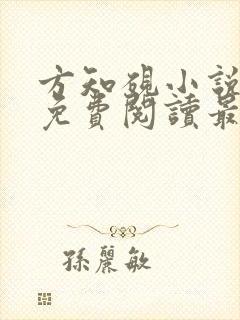 方知硯小說
免費閱讀最
孫麗敏